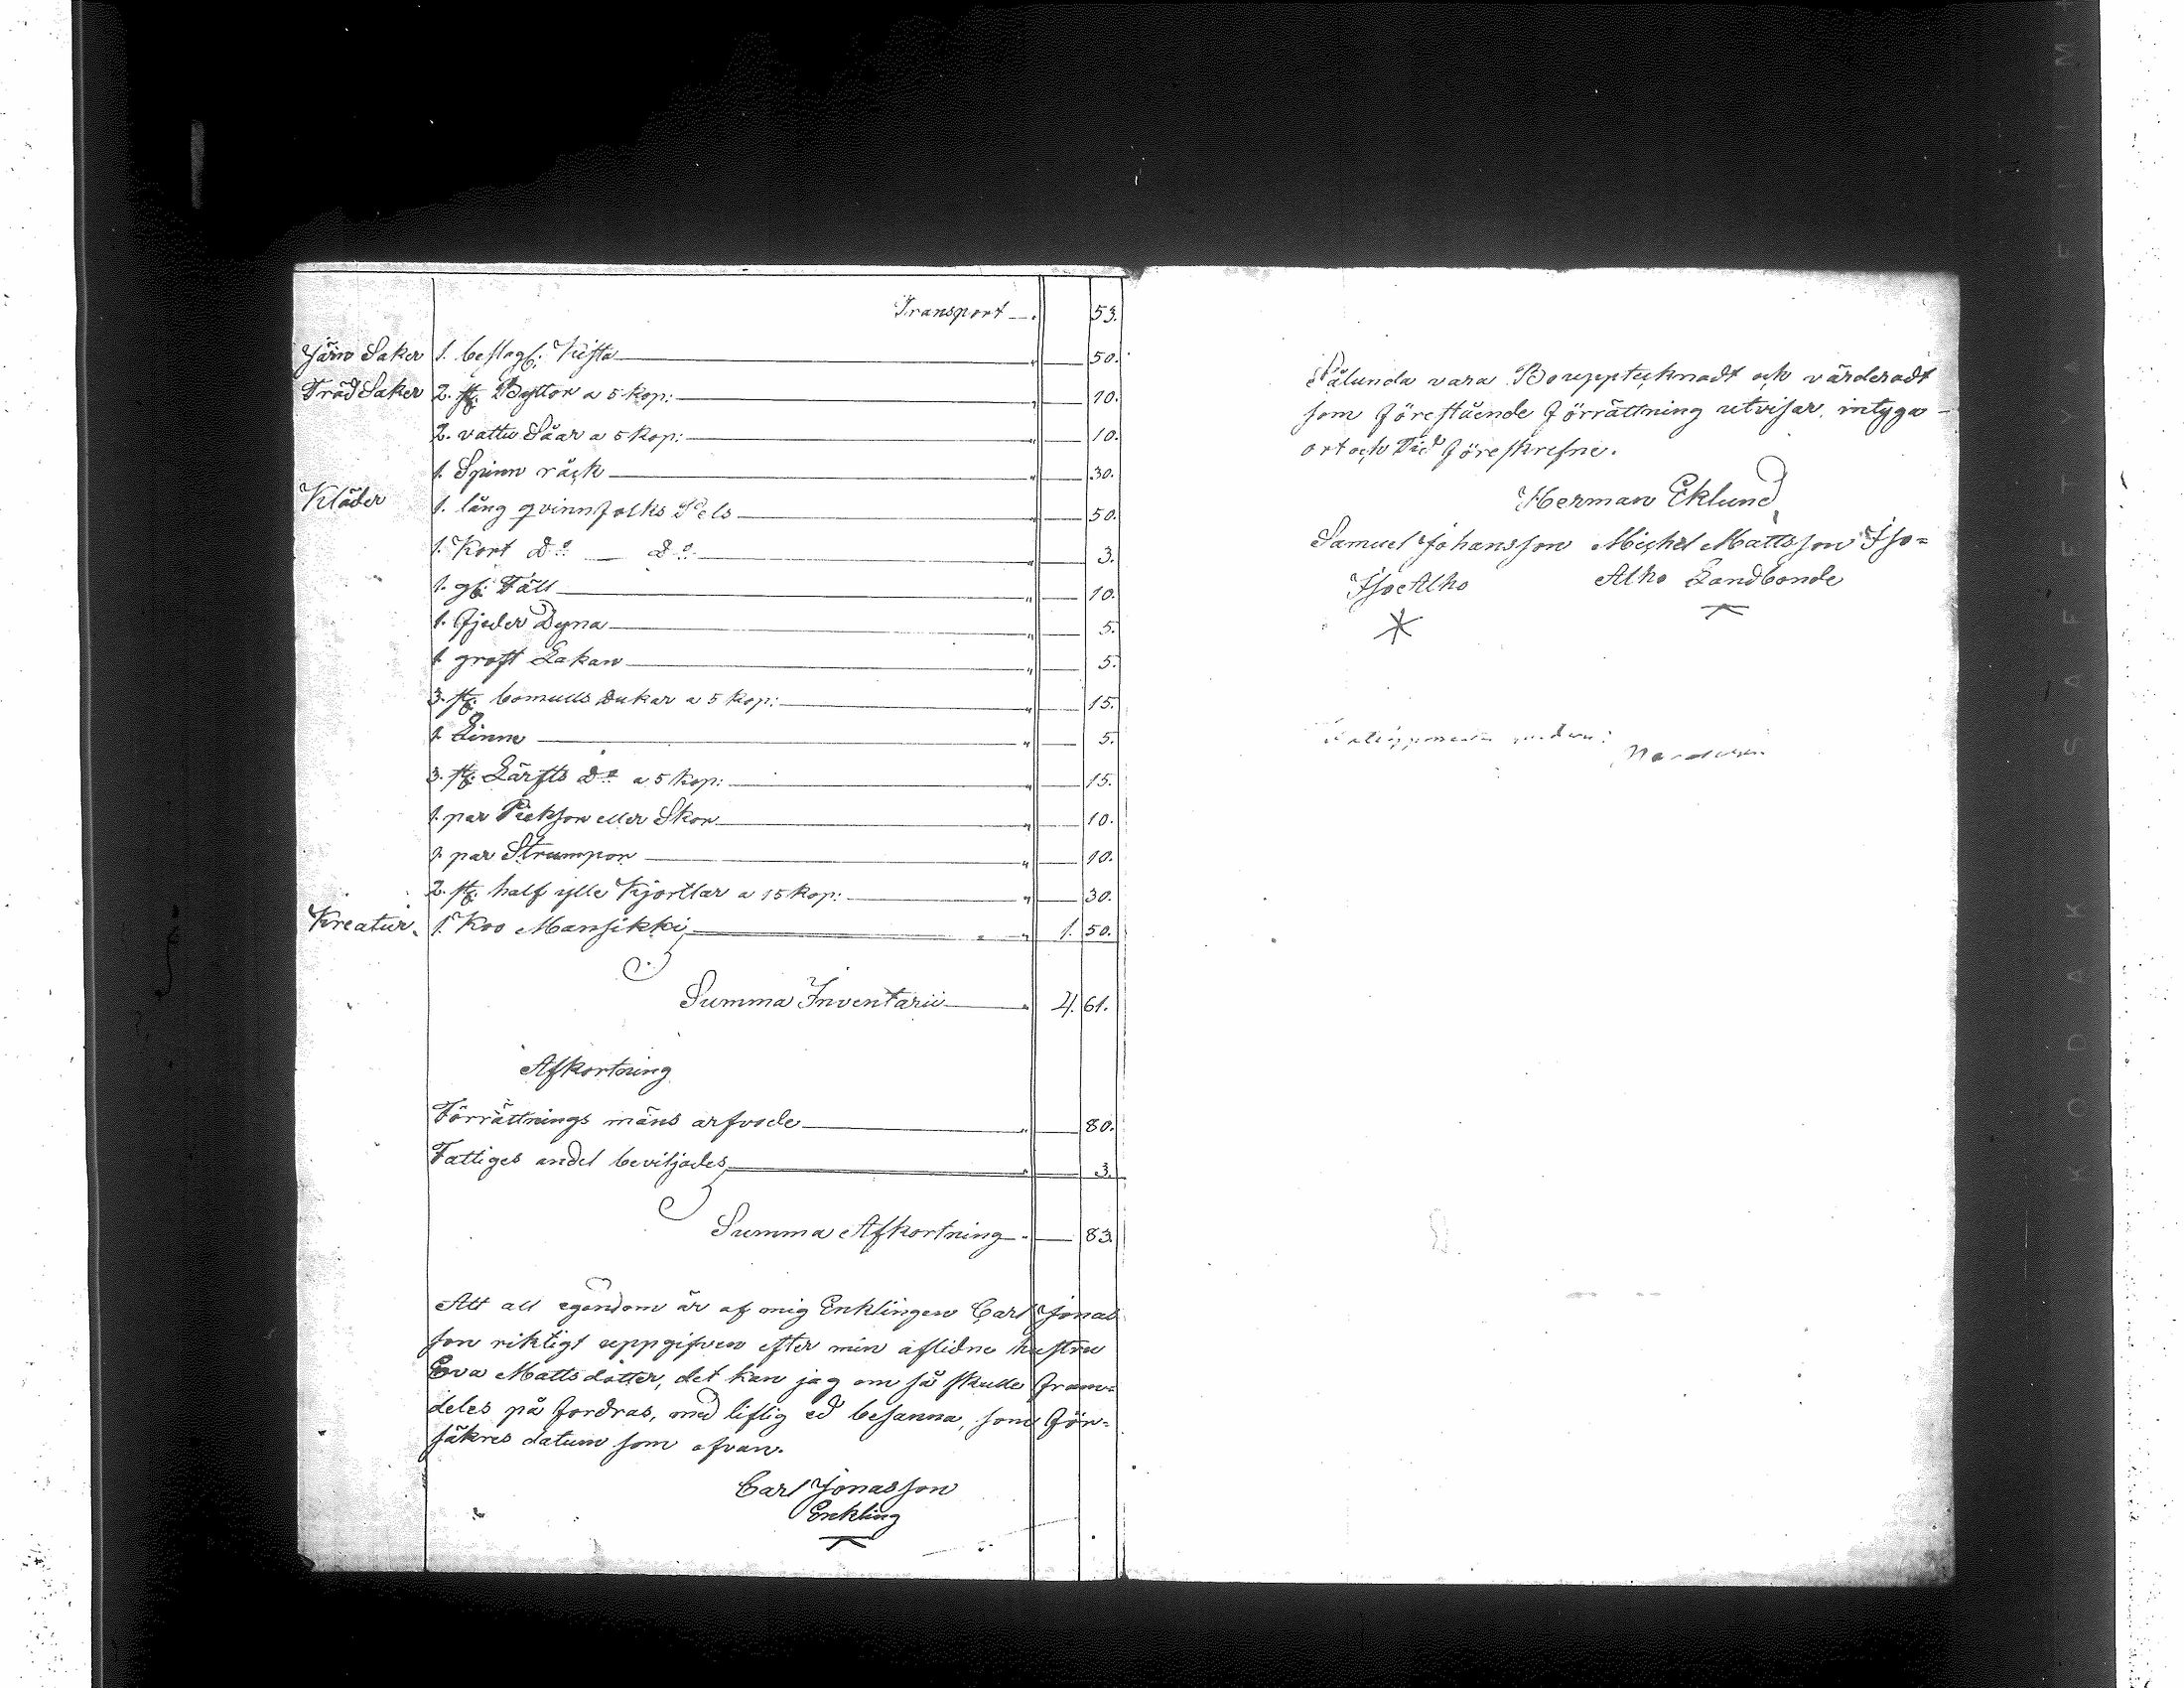 Transport 53.
Järn Saker 1. beslag gl: Kista 50.
Träd Saker 2. st: Byttor a 5 kop: 10.
2. vattu Såar a 5 kop: 10.
1. Spinn räck 30.
Kläder 1. lång qvinnfolks Pels 50.
1. Kort Do Do 3.
1. gl: Fäll 10.
1. fjeder Dyna 5.
1 groft Lakan 5.
3. st: bomulls dukar a 5 kop: 15.
1. Linne 5.
3. st: Lärfts Do a 5 kop: 15.
1. par Pieksor eller Skor 10.
1. par Strumpor 10.
2. st: half ylle Kjortlar a 15 kop: 30.
Kreatur. 1. Koo Mansikki 1. 50.
Summa Inventarii 4. 61.
Afkortning
Förrättnings mäns arfvode 80.
Fattiges andel beviljades 3.
Summa Afkortning 83.
Att all egendom är af mig Enklingen Carl Jonas
son riktigt uppgifven efter min aflidne hustru
Eva Mattsdotter, det kan jag om så skulle fram=
deles på fordras, med liflig ed besanna, som för=
säkres datum som ofvan.
Carl Jonasson
Enkling
Sålunda vara Boupptecknadt och värderadt
som förestående förrättning utvisar, intyga
ort och tid föreskrefne.
Herman Eklund
Samuel Johansson Michel Mattsson Iso=
Iso Alho Alho Landbonde
KODAK SAFETY FILM